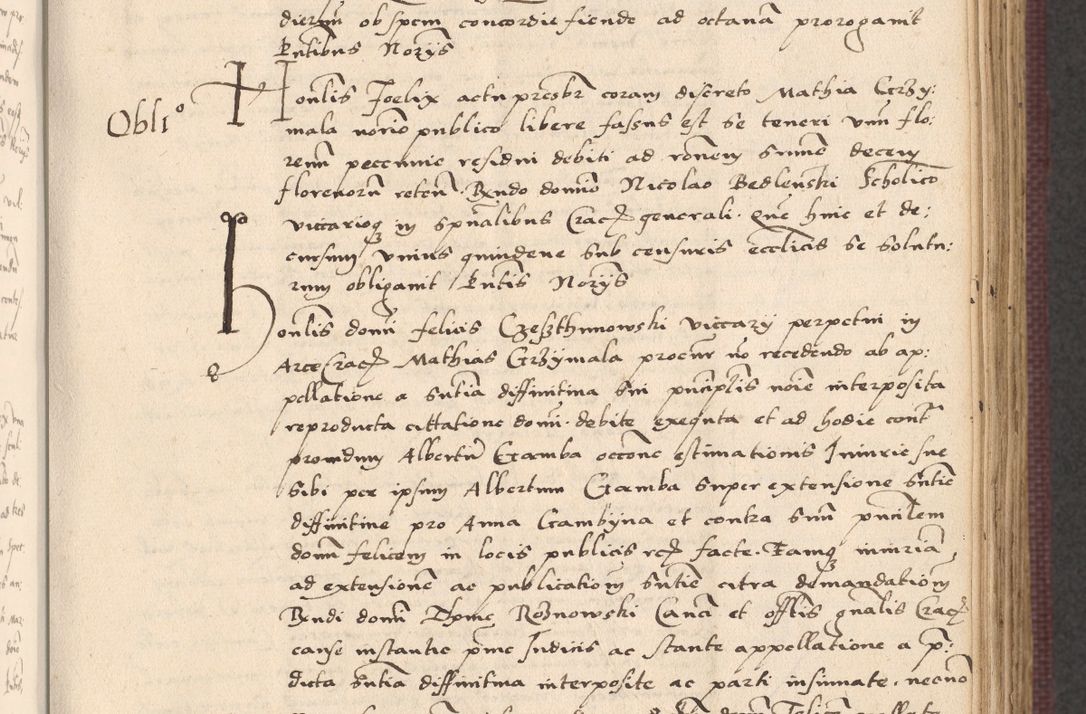 dierum ob spem concordie fiende ad octavā prorogavit
p̃ntibus Norijs
Obli°
Honlis Foelix actu presbr coram discreto Mathia Grzy:
mala norio publico libere fassus est se teneri unū flo:
renū peccunie residui debiti ad rōnem summe decem
florenorū reten. Rndo domino Nicolao Bedlenski Scholico
viccarioqz in spūalibus Crac generali. Que hinc et de:
cursum unius quindene sub censuris ecclicis se solutu:
rum obligavit p̃ntis Norijs
Honlis domi felicis Czeszthunowski viccarij perpetui in
Arce Crac Mathias Grzymala procur no recedendo ab ap:
pellatione a sñtia diffinitiva sui pñcipalis noie interposita
reproducta cittatione domi. debite exequuta et ad hodie cont
providum Albertū Gamba occone estimationis Iniurie sue
sibi per ipsum Albertum Gamba super extensione sñtie
diffinitive pro Anna Gambijna et contra suū pncilem
domi felicem in locis publicis rc facte. Tamqz iniuriā,
ad extensionē ac publicationem sñtie citra demandationem
Rndi domi Thome Roznowski Canci et offlis gnalis Crac
cause instantie prime Iudicis ac stante appellatione a p:
dicta sñtia diffinitiva interposite ac parti insinuate. necnō